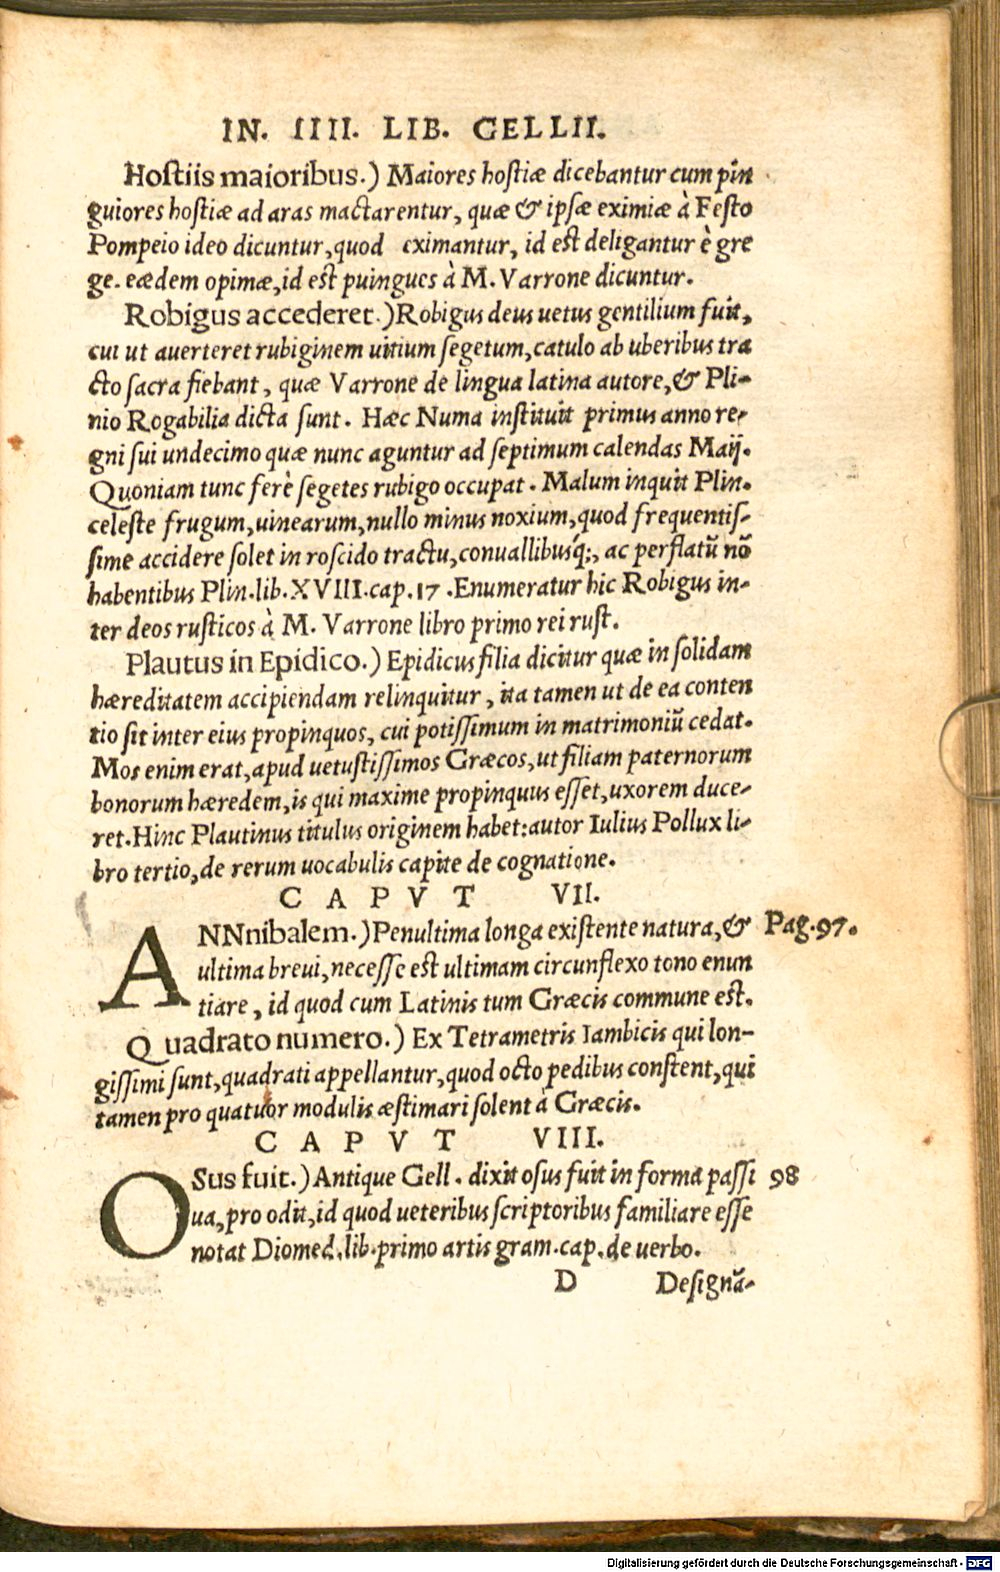 IN. IIII. LIB. GELLII.
Hostiis maioribus.) Maiores hostiæ dicebantur cum pin
guiores hostiæ ad aras mactarentur, quæ & ipsæ eximiæ à Festo
Pompeio ideo dicuntur, quod eximantur, id est deligantur è gre
ge. eædem opimæ, id est puingues à M. Varrone dicuntur.
Robigus accederet.) Robigus deus uetus gentilium fuit,
cui ut auerteret rubiginem uitium segetum, catulo ab uberibus tra
cto sacra fiebant, quæ Varrone de lingua latina autore, & Pli-
nio Rogabilia dicta sunt. Hæc Numa instituit primus anno re-
gni sui undecimo quæ nunc aguntur ad septimum calendas Maij.
Quoniam tunc ferè segetes rubigo occupat. Malum inquit Plin.
celeste frugum, uinearum, nullo minus noxium, quod frequentis-
sime accidere solet in roscido tractu, conuallibusq́;, ac perflatū nō
habentibus Plin. lib. XVIII. cap. 17. Enumeratur hic Robigus in-
ter deos rusticos à M. Varrone libro primo rei rust.
Plautus in Epidico.) Epidicus filia dicitur quæ in solidam
hæreditatem accipiendam relinquitur, ita tamen ut de ea conten
tio sit inter eius propinquos, cui potissimum in matrimoniū cedat.
Mos enim erat, apud uetustissimos Græcos, ut filiam paternorum
bonorum hæredem, is qui maxime propinquus esset, uxorem duce-
ret. Hinc Plautinus titulus originem habet: autor Iulius Pollux li-
bro tertio, de rerum uocabulis capite de cognatione.
CAPVT VII.
ANNnibalem.) Penultima longa existente natura, & Pag. 97.
ultima breui, necesse est ultimam circunflexo tono enun
tiare, id quod cum Latinis tum Græcis commune est.
Quadrato numero.) Ex Tetrametris Iambicis qui lon-
gissimi sunt, quadrati appellantur, quod octo pedibus constent, qui
tamen pro quatuor modulis æstimari solent à Græcis.
CAPVT VIII.
OSus fuit.) Antique Gell. dixit osus fuit in forma passi 98
ua, pro odit, id quod ueteribus scriptoribus familiare esse
notat Diomed. lib. primo artis gram. cap. de uerbo.
D Designā-
Digitalisierung gefördert durch die Deutsche Forschungsgemeinschaft - DFG